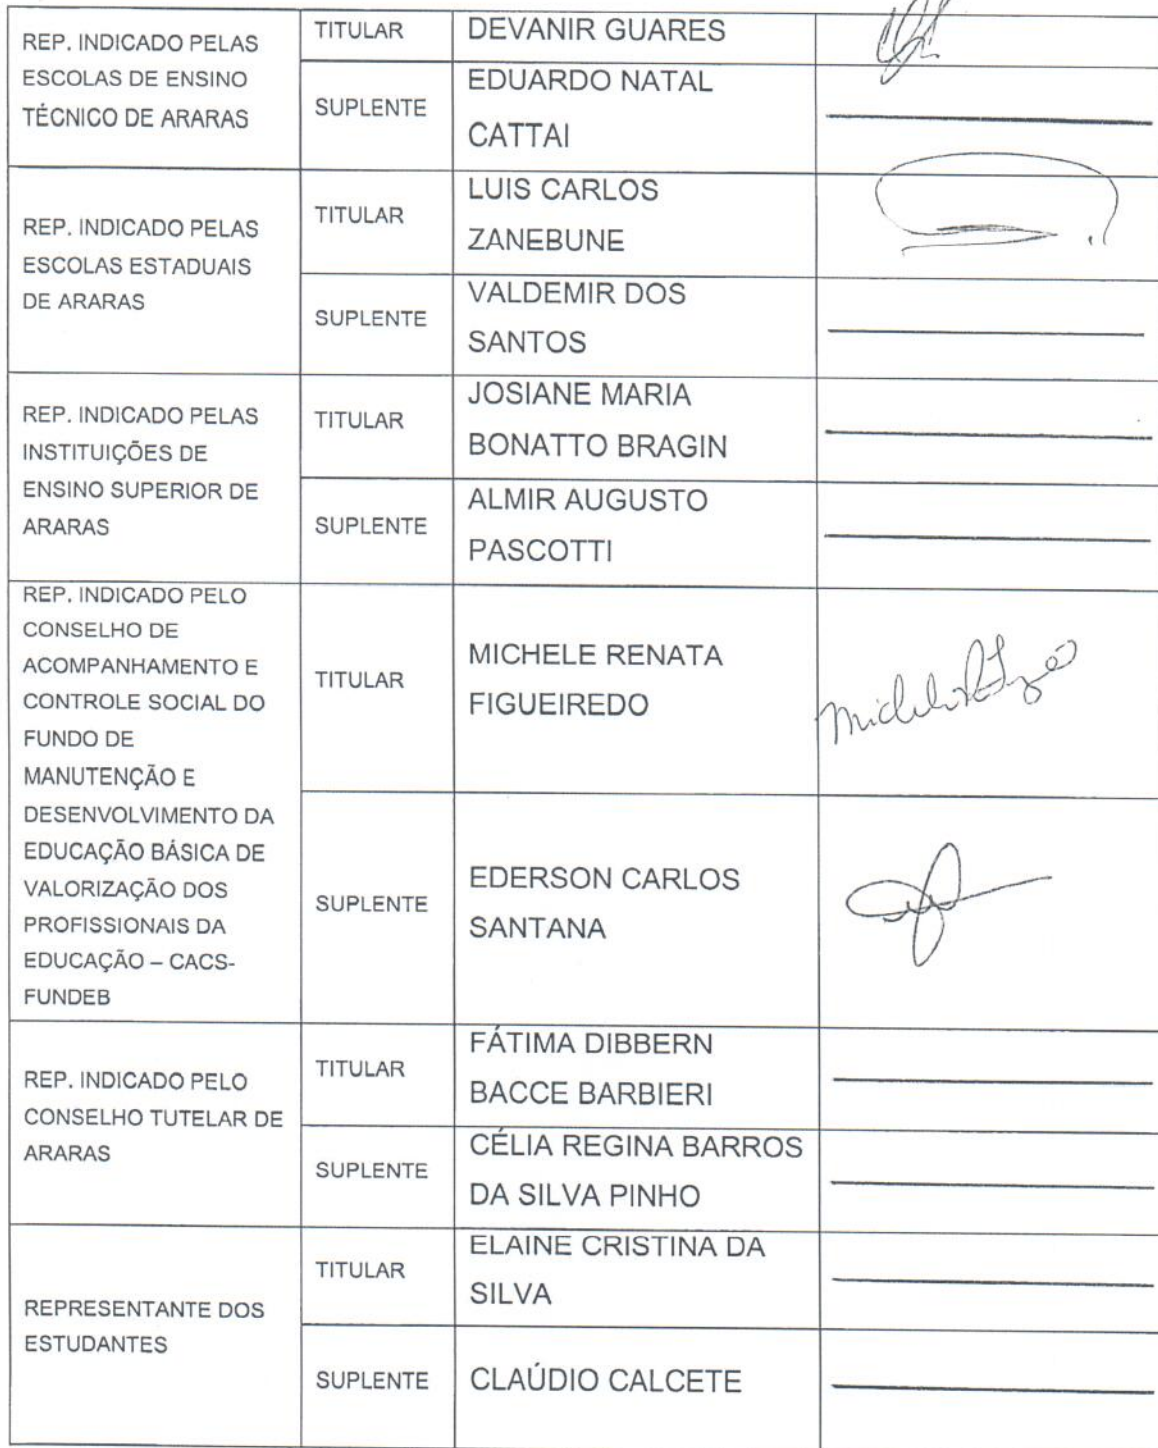 REP. INDICADO PELAS
ESCOLAS DE ENSINO
TÉCNICO DE ARARAS
TITULAR
DEVANIR GUARES
SUPLENTE
EDUARDO NATAL
CATTAI
REP. INDICADO PELAS
ESCOLAS ESTADUAIS
DE ARARAS
TITULAR
LUIS CARLOS
ZANEBUNE
SUPLENTE
VALDEMIR DOS
SANTOS
REP. INDICADO PELAS
INSTITUIÇÕES DE
ENSINO SUPERIOR DE
ARARAS
TITULAR
JOSIANE MARIA
BONATTO BRAGIN
SUPLENTE
ALMIR AUGUSTO
PASCOTTI
REP. INDICADO PELO
CONSELHO DE
ACOMPANHAMENTO E
CONTROLE SOCIAL DO
FUNDO DE
MANUTENÇÃO E
DESENVOLVIMENTO DA
EDUCAÇÃO BÁSICA DE
VALORIZAÇÃO DOS
PROFISSIONAIS DA
EDUCAÇÃO – CACS-
FUNDEB
TITULAR
MICHELE RENATA
FIGUEIREDO
SUPLENTE
EDERSON CARLOS
SANTANA
REP. INDICADO PELO
CONSELHO TUTELAR DE
ARARAS
TITULAR
FÁTIMA DIBBERN
BACCE BARBIERI
SUPLENTE
CÉLIA REGINA BARROS
DA SILVA PINHO
REPRESENTANTE DOS
ESTUDANTES
TITULAR
ELAINE CRISTINA DA
SILVA
SUPLENTE
CLAÚDIO CALCETE